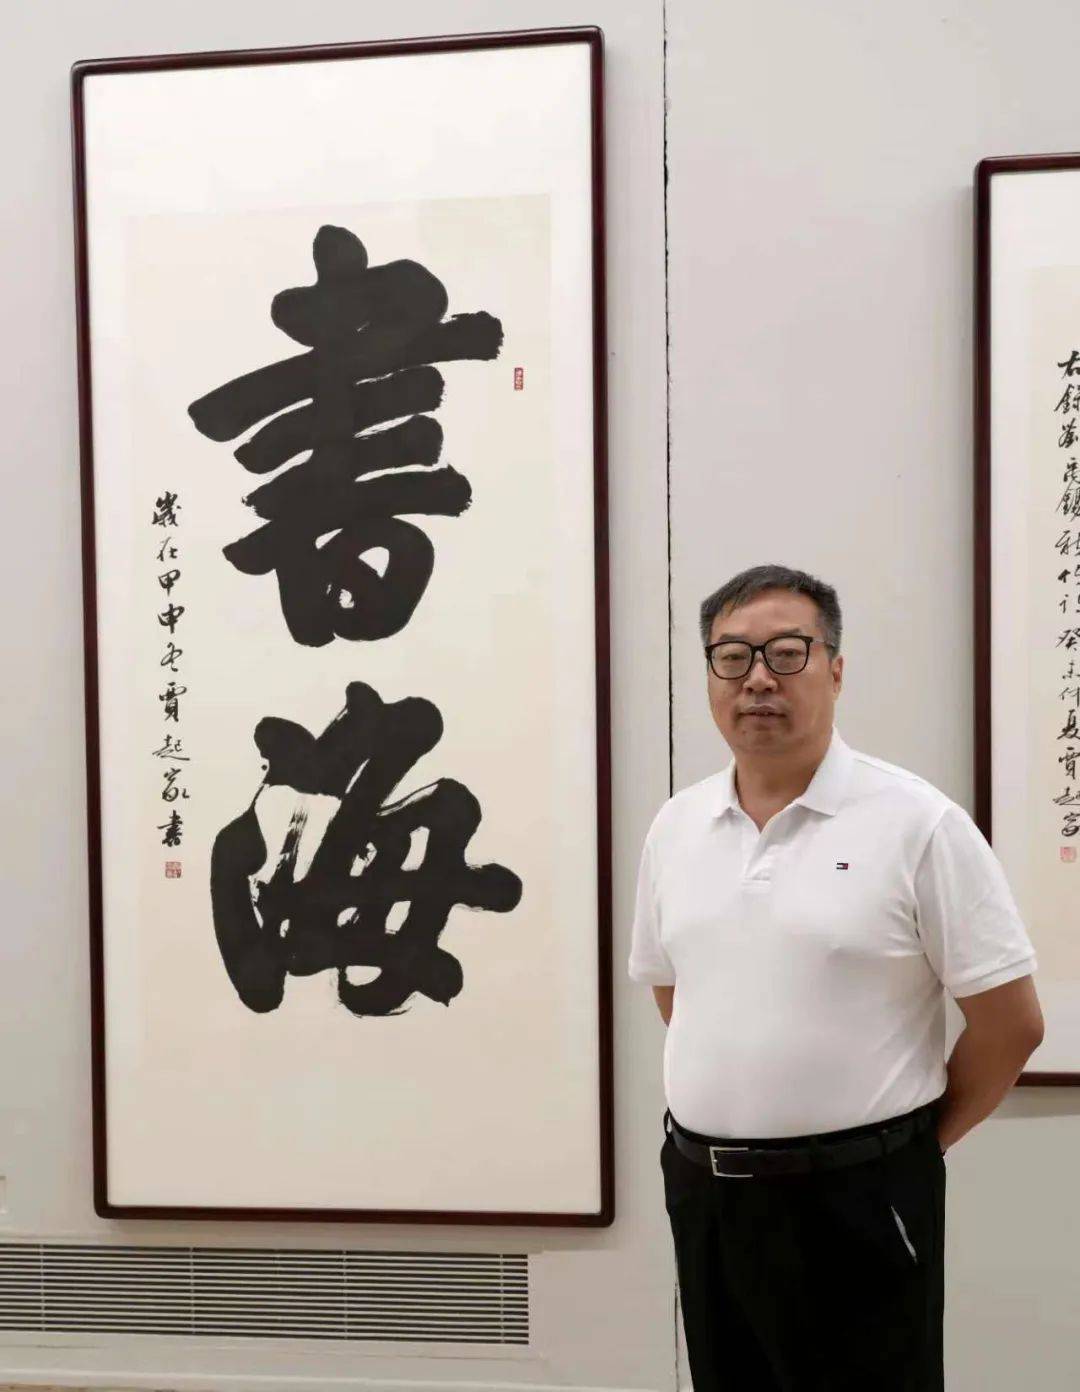 書海
歲在甲申冬賈起家書
右録劉禹錫秋詞詩癸未仲夏賈起家